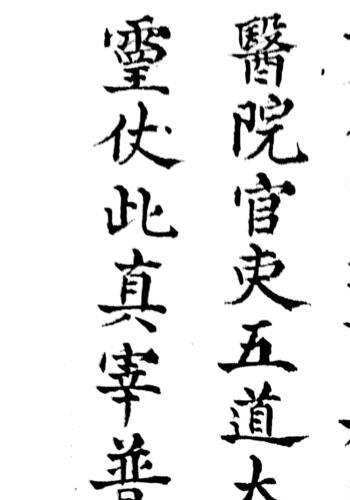 醫院官吏五道大
靈伏此真宰普